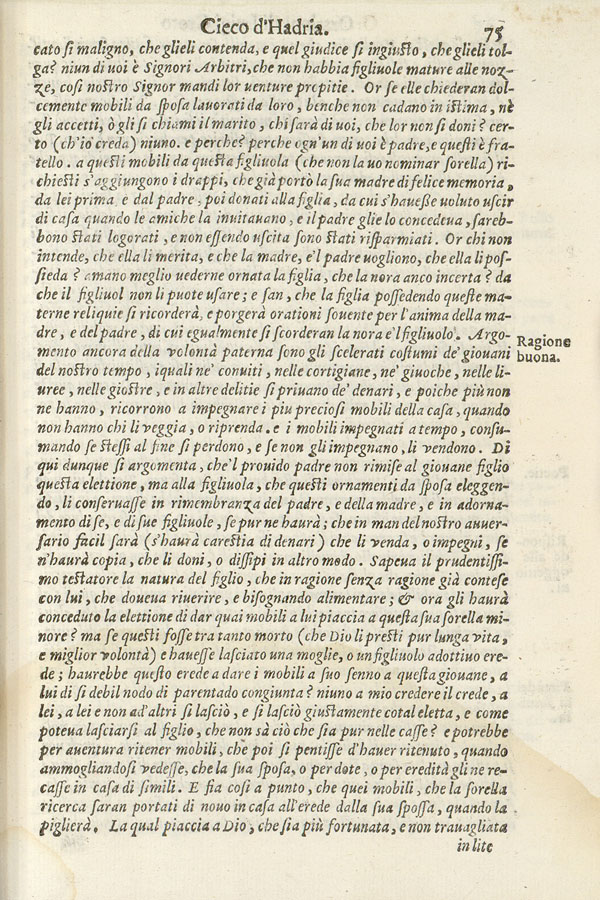 Cieco d'Hadria.
75
cato si maligno, che glieli contenda, e quel giudice si ingiusto, che glieli tol-
ga? niun di uoi è Signori Arbitri, che non habbia figliuole mature alle noz-
ze, cosi nostro Signor mandi lor uenture propitie. Or se elle chiederan dol-
cemente mobili da sposa lauorati da loro, benche non cadano in istima, nè
gli accetti, ò gli si chiami il marito, chi sarà di uoi, che lor non si doni? cer-
to (ch'io creda) niuno. e perche? perche ogn'un di uoi è padre, e questi è fra-
tello. a questi mobili da questa figliuola (che non la uo nominar sorella) ri-
chiesti s'aggiungono i drappi, che già portò la sua madre di felice memoria,
da lei prima, e dal padre, poi donati alla figlia, da cui s'hauesse uoluto uscir
di casa quando le amiche la inuitauano, e il padre glie lo concedeua, sareb-
bono stati logorati, e non essendo uscita sono stati risparmiati. Or chi non
intende, che ella li merita, e che la madre, e'l padre uogliono, che ella li pos-
sieda? amano meglio uederne ornata la figlia, che la nora anco incerta? da
che il figliuol non li puote usare; e san, che la figlia possedendo queste ma-
terne reliquie si ricorderà, e porgerà orationi souente per l'anima della ma-
dre, e del padre, di cui egualmente si scorderan la nora e'l figliuolo. Argo-
mento ancora della volontà paterna sono gli scelerati costumi de' giouani
del nostro tempo, iquali ne' conuiti, nelle cortigiane, ne' giuoche, nelle li-
uree, nelle giostre, e in altre delitie si priuano de' denari, e poiche più non
ne hanno, ricorrono a impegnare i piu preciosi mobili della casa, quando
non hanno chi li veggia, o riprenda. e i mobili impegnati a tempo, consu-
mando se stessi al fine si perdono, e se non gli impegnano, li vendono. Di
qui dunque si argomenta, che'l prouido padre non rimise al giouane figlio
questa elettione, ma alla figliuola, che questi ornamenti da sposa eleggen-
do, li conseruasse in rimembranza del padre, e della madre, e in adorna-
mento di se, e di sue figliuole, se pur ne haurà; che in man del nostro auuer-
sario facil sarà (s'haurà carestia di denari) che li venda, o impegni, se
n'haurà copia, che li doni, o dissipi in altro modo. Sapeua il prudentissi-
mo testatore la natura del figlio, che in ragione senza ragione già contese
con lui, che doueua riuerire, e bisognando alimentare; & ora gli haurà
conceduto la elettione di dar quai mobili a lui piaccia a questa sua sorella mi-
nore? ma se questi fosse tra tanto morto (che Dio li presti pur lunga vita,
e miglior volontà) e hauesse lasciato una moglie, o un figliuolo adottiuo ere-
de; haurebbe questo erede a dare i mobili a suo senno a questa giouane, a
lui di si debil nodo di parentado congiunta? niuno a mio credere il crede, a
lei, a lei e non ad'altri si lasciò, e si lasciò giustamente cotal eletta, e come
poteua lasciarsi al figlio, che non sà ciò che sia pur nelle casse? e potrebbe
per auentura ritener mobili, che poi si pentisse d'hauer ritenuto, quando
ammogliandosi vedesse, che la sua sposa, o per dote, o per eredità gli ne re-
casse in casa di simili. E fia cosi a punto, che quei mobili, che la sorella
ricerca saran portati di nouo in casa all'erede dalla sua spossa, quando la
piglierà. La qual piaccia a Dio, che sia più fortunata, e non trauagliata
in lite
Ragione
buona.